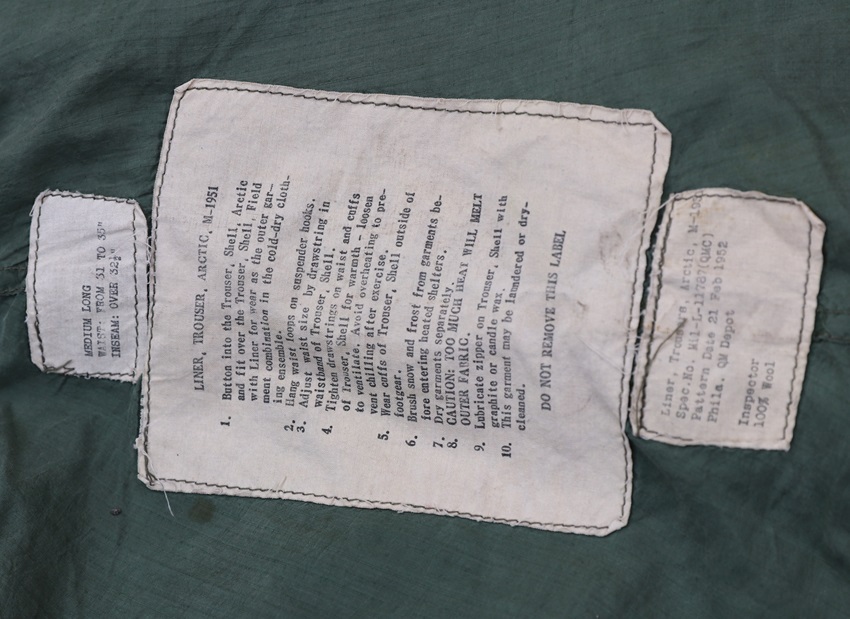 MEDIUM LONG
WAIST: FROM 31 TO 35"
INSEAM: OVER 32½"
LINER, TROUSER, ARCTIC, M-1951
1. Button into the Trouser, Shell, Arctic
and fit over the Trouser, Shell, Field
with Liner for wear as the outer gar-
ment combination in the cold-dry cloth-
ing ensemble.
2. Hang waist loops on suspender hooks.
3. Adjust waist size by drawstring in
waistband of Trouser, Shell.
4. Tighten drawstrings on waist and cuffs
of Trouser, Shell for warmth - loosen
to ventilate. Avoid overheating to pre-
vent chilling after exercise.
5. Wear cuffs of Trouser, Shell outside of
footgear.
6. Brush snow and frost from garments be-
fore entering heated shelters.
7. Dry garments separately.
8. CAUTION: TOO MUCH HEAT WILL MELT
OUTER FABRIC.
9. Lubricate zipper on Trouser, Shell with
graphite or candle wax.
10. This garment may be laundered or dry-
cleaned.
DO NOT REMOVE THIS LABEL
Liner, Trousers Arctic, M-195
Spec.No. Mil-L-11787(QMC)
Pattern Date 21 Feb 1952
Phila. QM Depot
Inspector
100% Wool